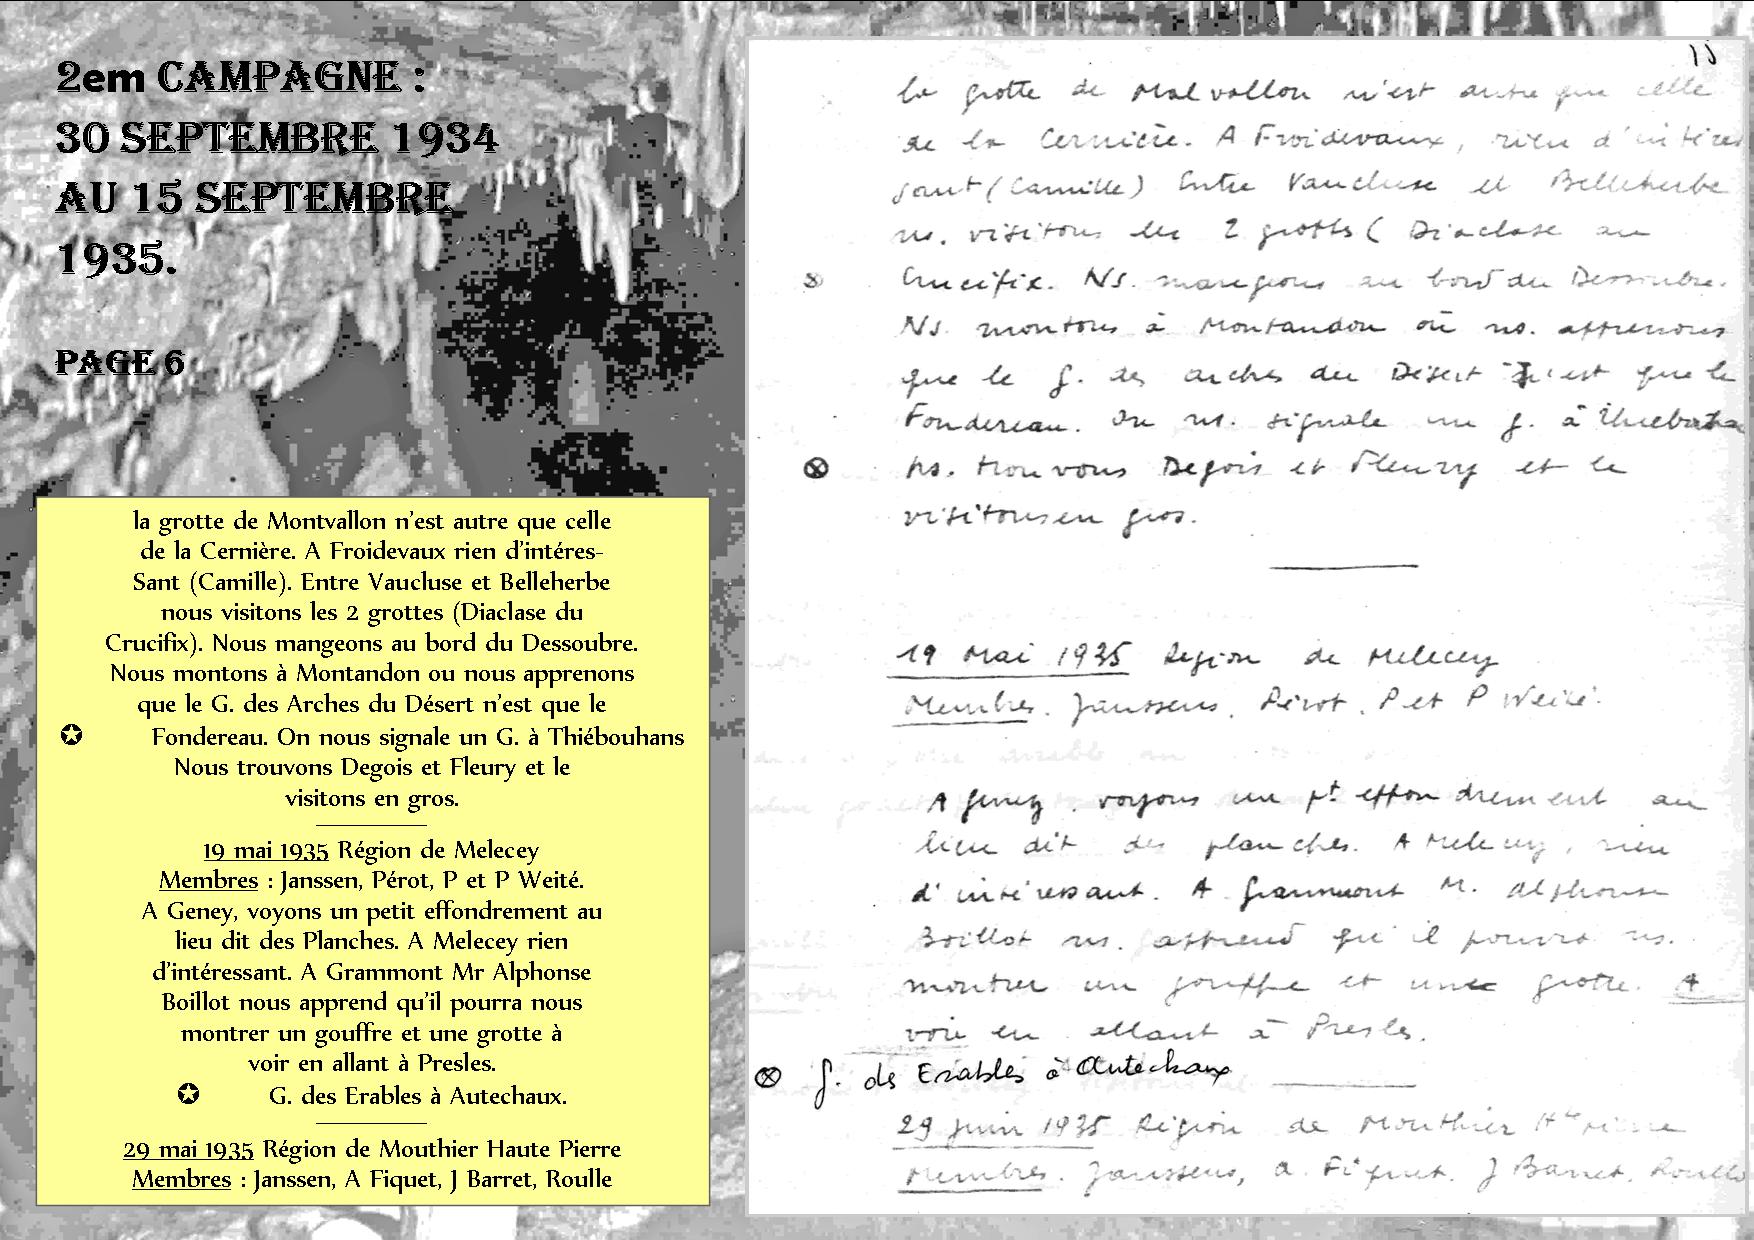 2em CAMPAGNE :
30 SEPTEMBRE 1934
AU 15 SEPTEMBRE
1935.
PAGE 6
la grotte de Montvallon n'est autre que celle
de la Cernière. A Froidevaux rien d'intéres-
Sant (Camille). Entre Vaucluse et Belleherbe
nous visitons les 2 grottes (Diaclase du
Crucifix). Nous mangeons au bord du Dessoubre.
Nous montons à Montandon ou nous apprenons
que le G. des Arches du Désert n'est que le
✪ Fondereau. On nous signale un G. à Thiébouhans
Nous trouvons Degois et Fleury et le
visitons en gros.
19 mai 1935 Région de Melecey
Membres : Janssen, Pérot, P et P Weité.
A Geney, voyons un petit effondrement au
lieu dit des Planches. A Melecey rien
d'intéressant. A Grammont Mr Alphonse
Boillot nous apprend qu'il pourra nous
montrer un gouffre et une grotte à
voir en allant à Presles.
✪ G. des Erables à Autechaux.
29 mai 1935 Région de Mouthier Haute Pierre
Membres : Janssen, A Fiquet, J Barret, Roulle
la grotte de Malvallon n'est autre que celle
de la Cernière. A Froidevaux, rien d'intéres
sant (Camille) Entre Vaucluse et Belleherbe
ns. visitons les 2 grottes ( Diaclase au
Crucifix. Ns. mangeons au bord du Dessoubre.
Ns. montons à Montandon où ns. apprenons
que le g. des arches du Désert n'est que le
Fondereau. On ns. signale un g. à
⊗ Ns. trouvons Degois et Fleury et le
visitons en gros.
19 Mai 1935 Région de Melecey
Membres. Janssens, Pérot, P et P Weité.
A Geney, voyons un pt effondrement au
lieu dit des planches. A Melecey, rien
d'intéressant. A Grammont M. Alphonse
Boillot ns. apprend qu'il pourra ns.
montrer un gouffre et une grotte. A
voir en allant à Presles.
⊗ g. des Erables à Autechaux
29 juin 1935 Région de Mouthier Hte Pierre
Membres. Janssens, A. Fiquet, J Barret, Roulle